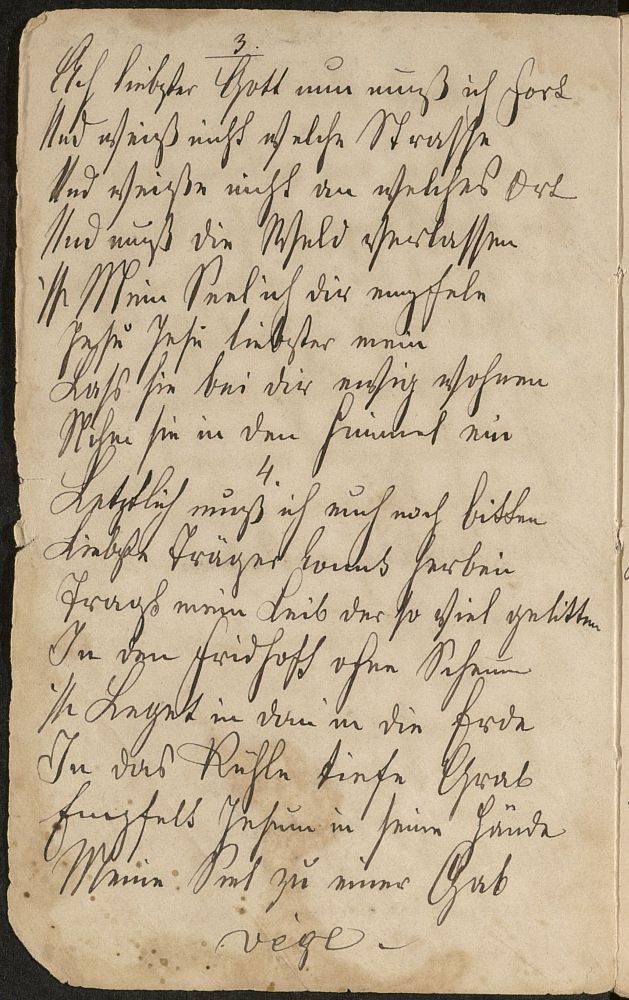 3.
Ach liebster Gott nun muß ich fort
Und weiß nicht welche Strasse
Und weiße nicht an welches Ort
Und muß die Weld verlassen
Mein Seel ich dir empfeln
Jesu Jesu liebster mein
Lass sie bei dir ewig wohnen
Nihm sie in den Himmel ein
4.
Letztlich muß ich euch noch bitten
Liebste Träger komt herbei
Tragt mein Leib der so viel gelitten
In den Fridhoft ohne Scheu
Leget in dan in die Erde
In das Kühle tiefe Grab
Empfelt Jesum in seine Hände
Meine Sel zu einer Gab
vége -